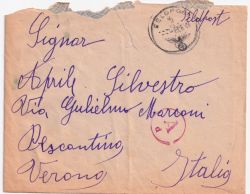 FELDPOST
Feldpost
Signor
Aprili Silvestro
Via Gulielmo Marconi
Bescantino
Verona
Italia